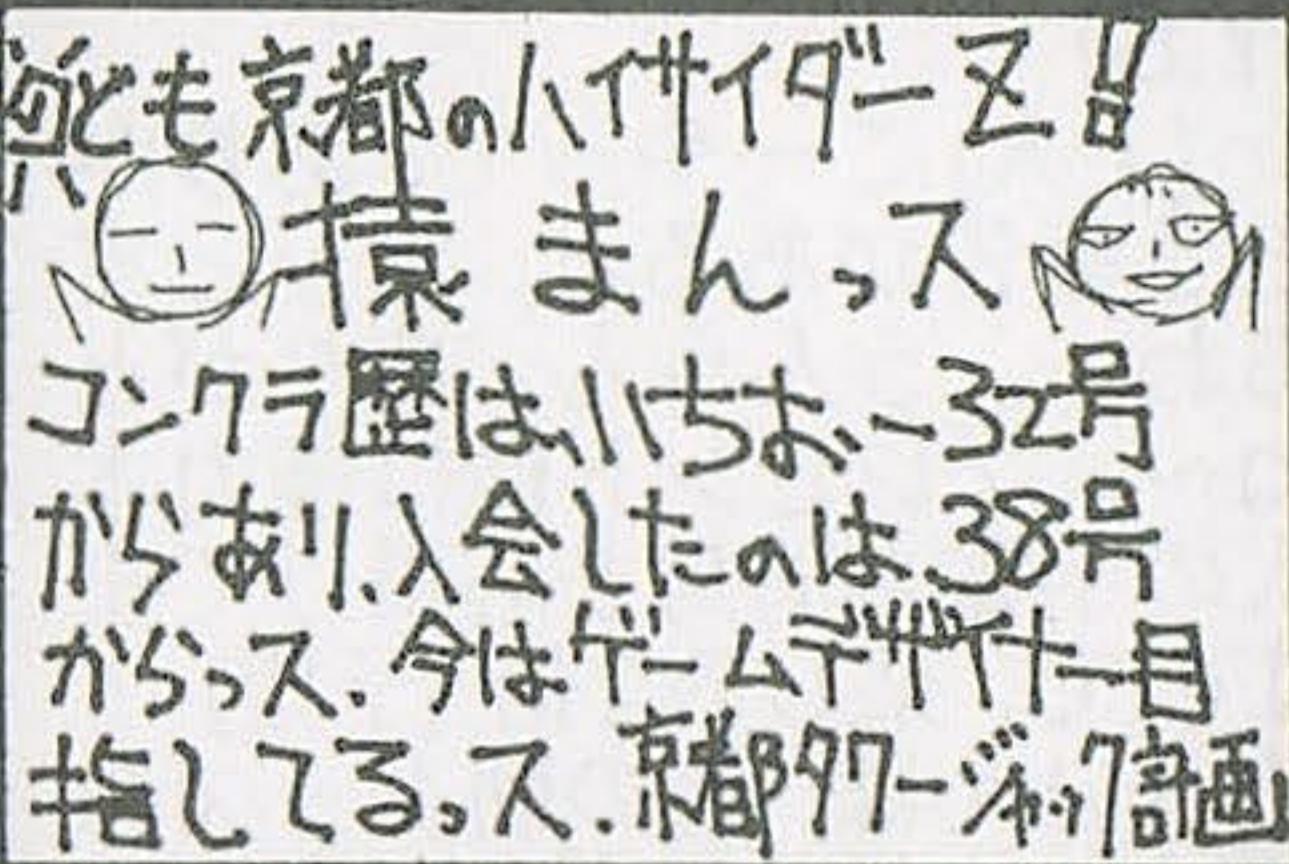 ども京都のハイサイダーZ!!
猿まんっス
コンクラ歴は、いちおー32号
からあり、入会したのは、38号
からっス.今はゲームデザイナー目
指してるっス.京都タワージャック計画